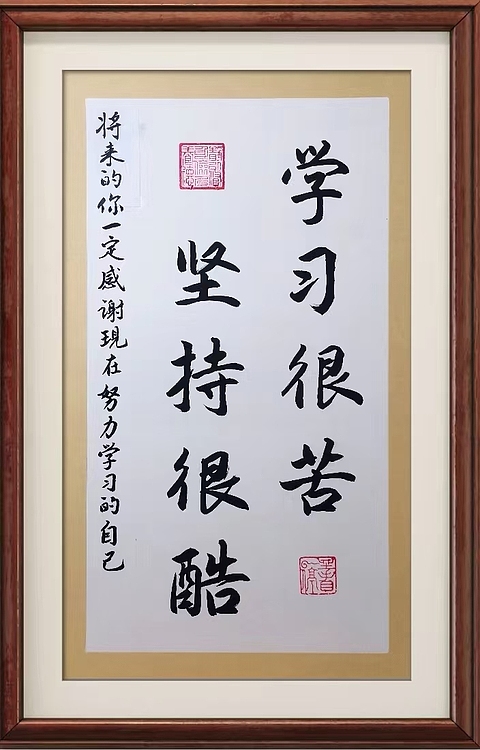 学习很苦
坚持很酷
将来的你一定感谢現在努力学习的自己